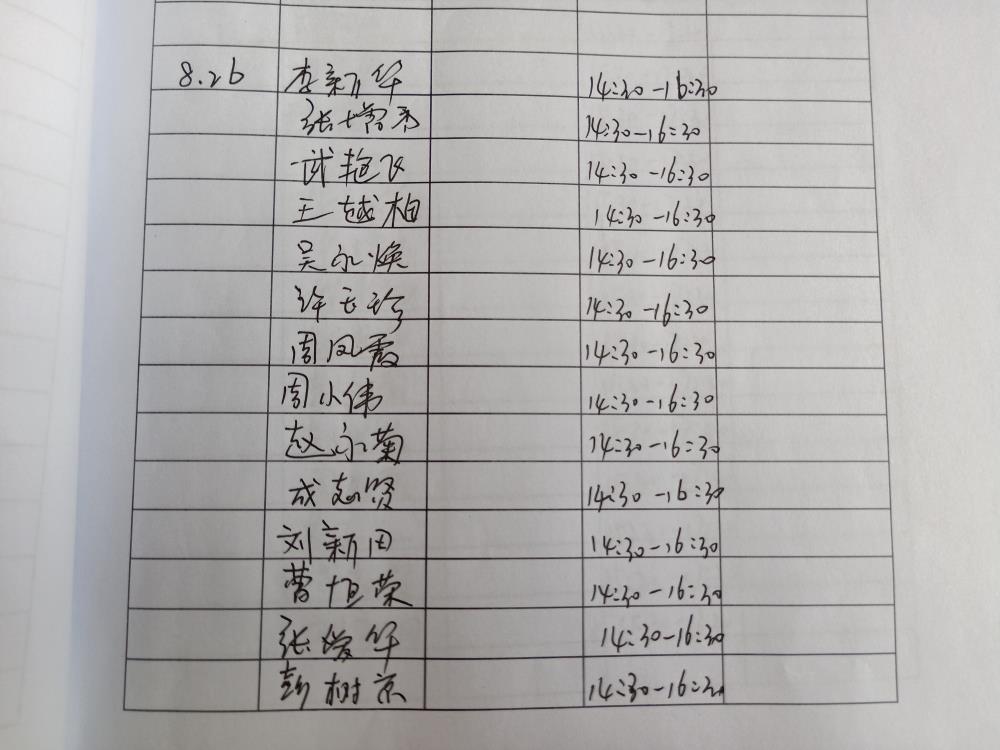 8.26 李新华 14:30-16:30
张增秀 14:30-16:30
武艳飞 14:30-16:30
王越柏 14:30-16:30
吴永焕 14:30-16:30
许玉珍 14:30-16:30
周凤霞 14:30-16:30
周小伟 14:30-16:30
赵永菊 14:30-16:30
成志贤 14:30-16:30
刘新田 14:30-16:30
曹恒荣 14:30-16:30
张爱华 14:30-16:30
彭树京 14:30-16:30